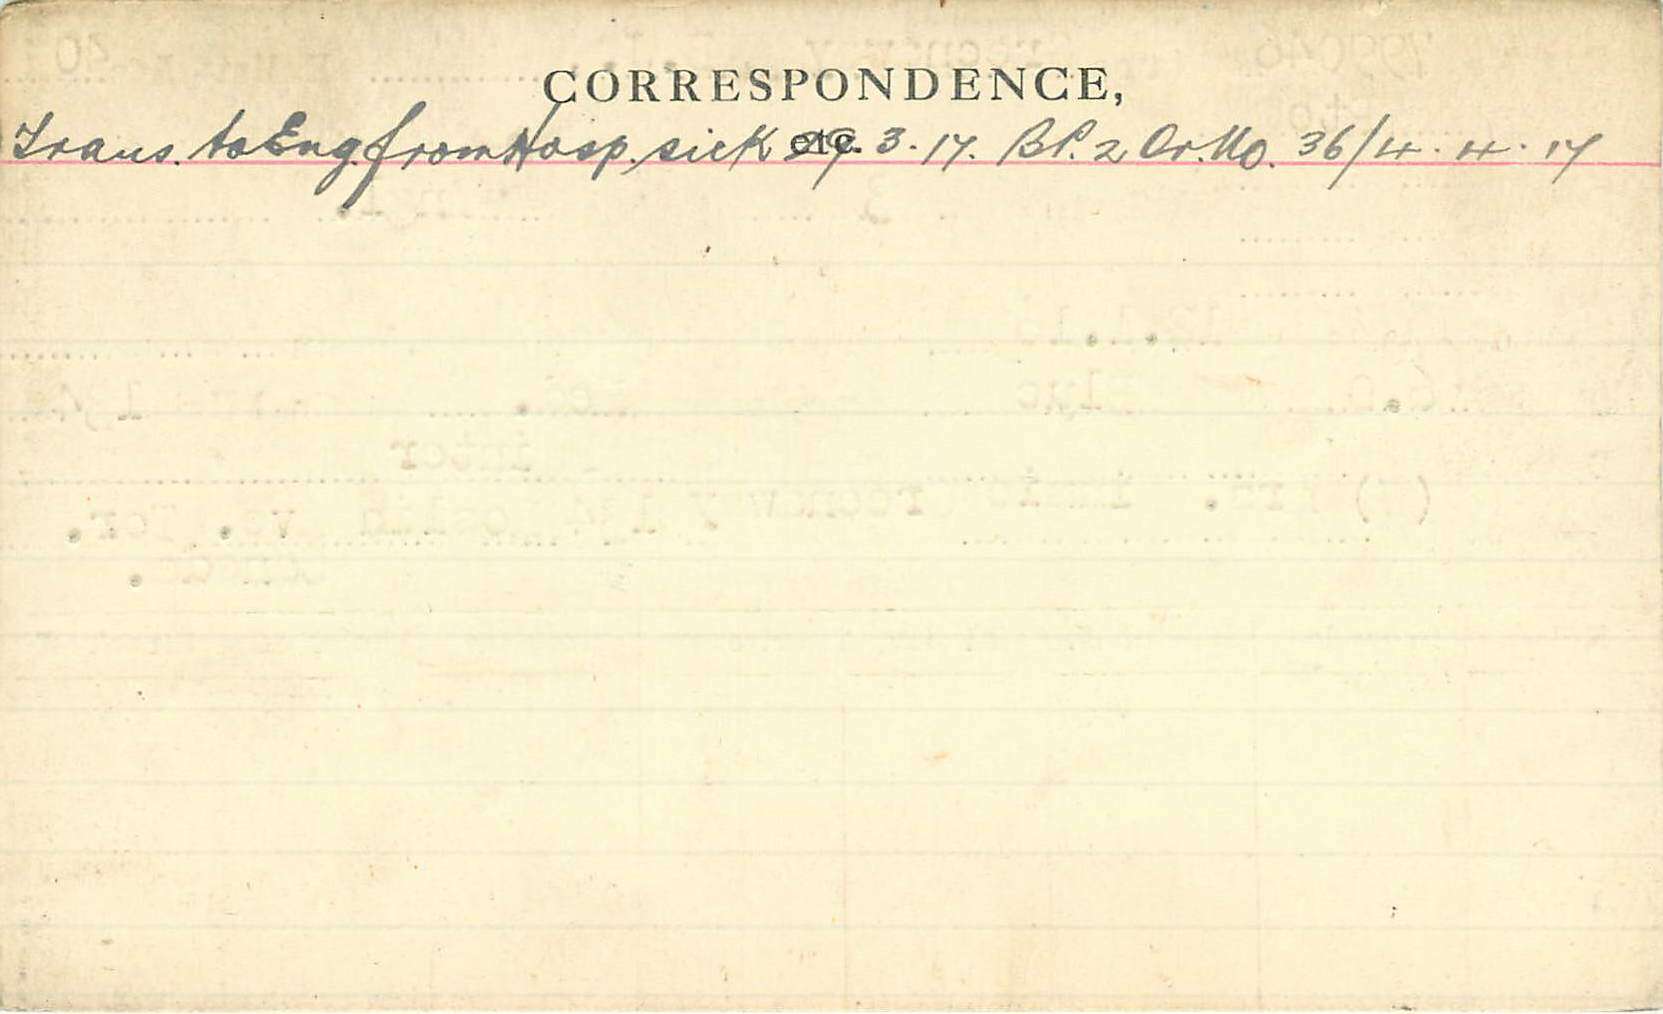 CORRESPONDENCE,
etc.
Trans. to Eng. from Hosp. sick 29.3.17. B.P. 2 Or. No. 36/4.4.17